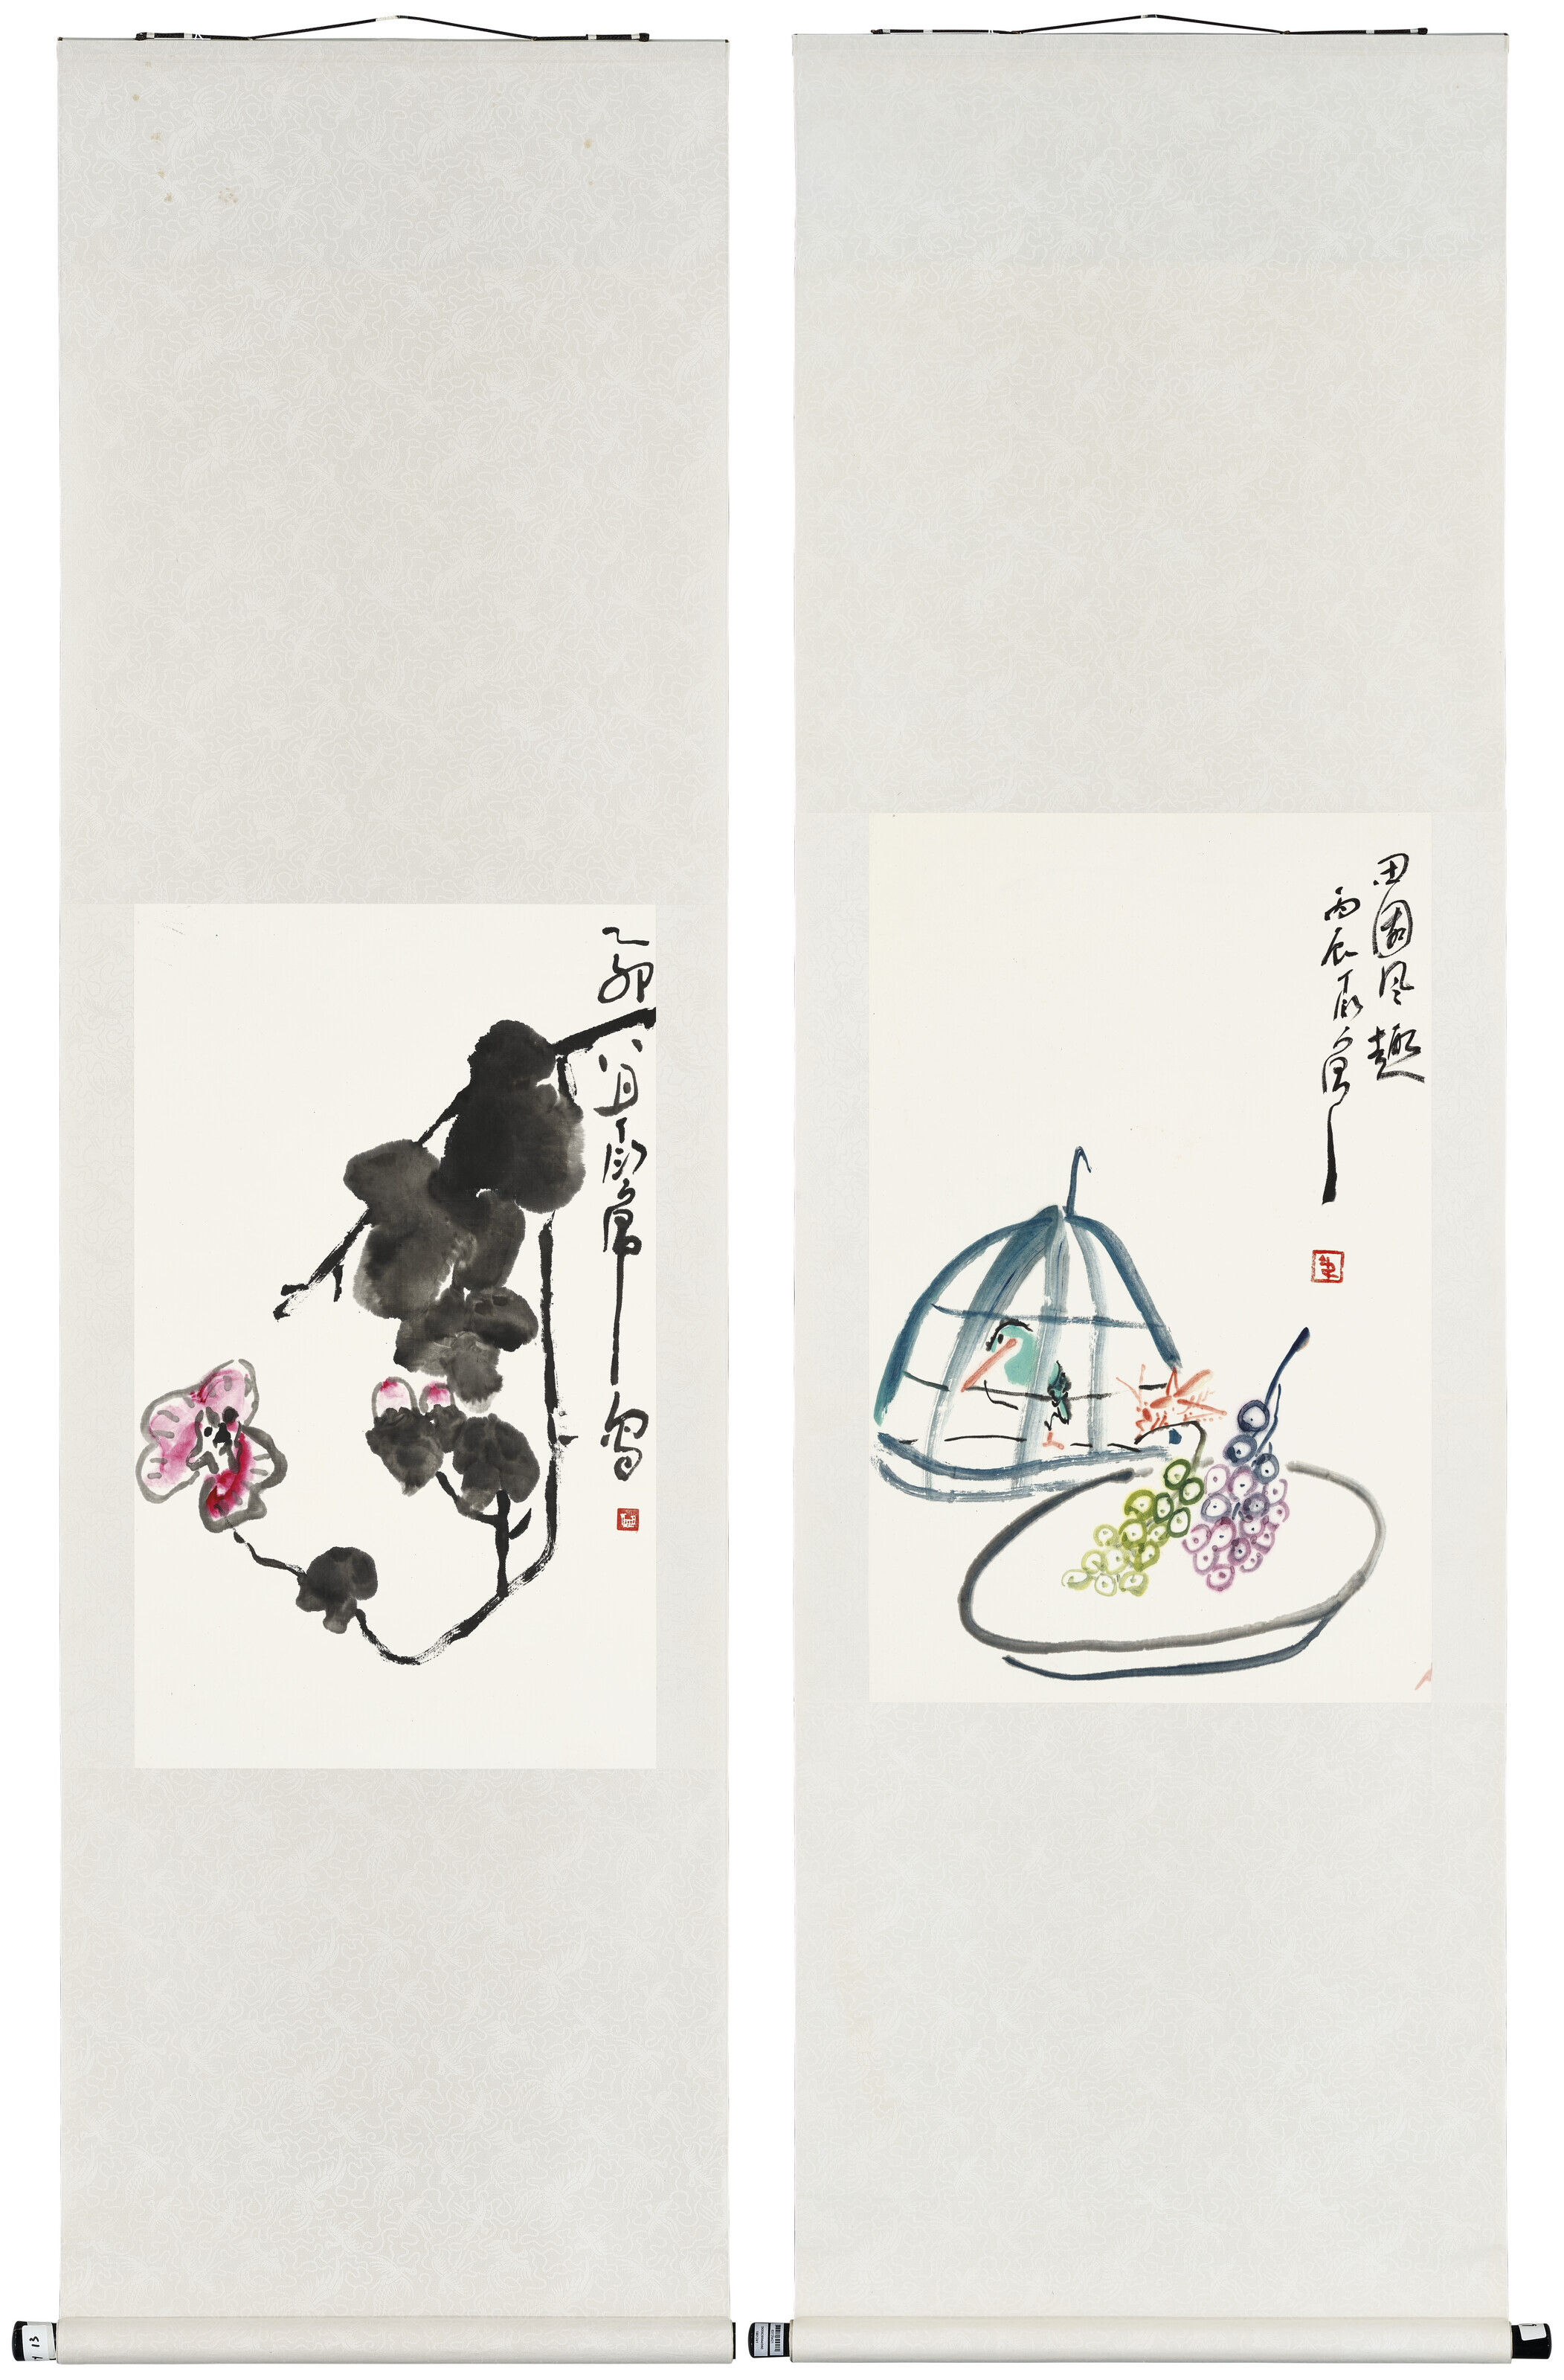 乙卯
八月丁衍庸
寫
田園風趣
丙辰丁衍庸
13